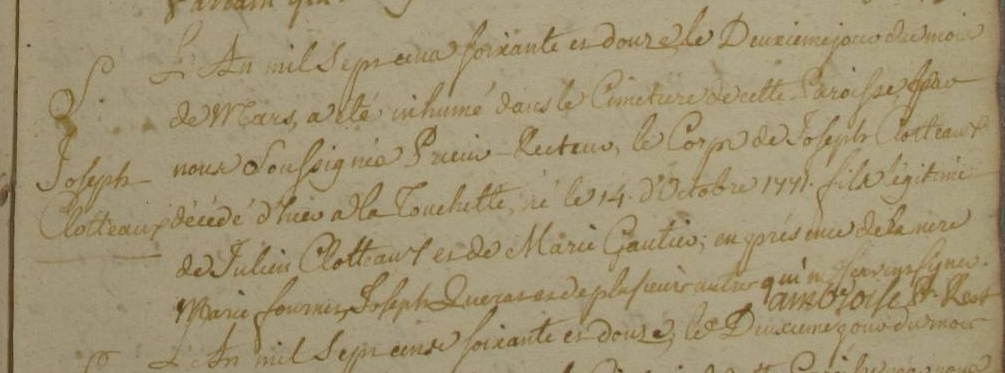 L'An mil Sept cens soixante et douze, le Deuxieme jour du mois
S.
de Mars, a été inhumé dans le Cimetiere de cette Paroisse par
nous Soussigné Prieur-Recteur, le Corps de Joseph Clotteaux
Joseph
Clotteaux
décédé d'hier a la Touchette, né le 14. d'Octobre 1771. fils légitime
de Julien Clotteaux et de Marie Gautier; en présence de la mere
Marie fournier, Joseph et de plusieurs autres qui ne signer.
ambroise Rect
L'An mil Sept cens soixante et douze, le Deuxieme jour du mois